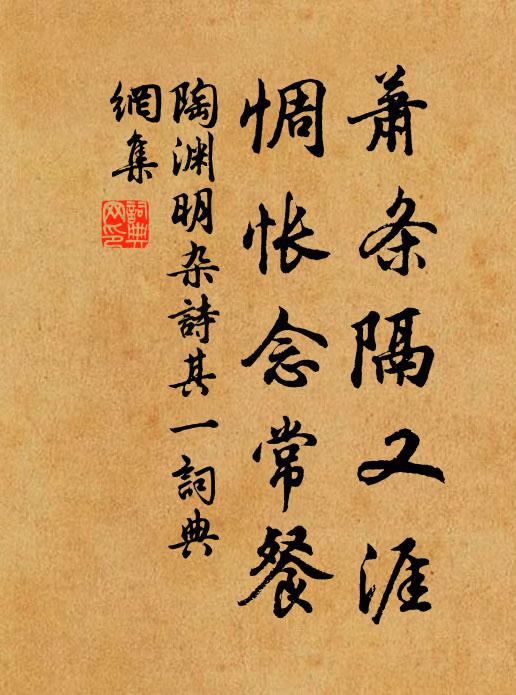 蕭条隔又涯
惆怅念常餐
陶渊明杂詩其一詞典
網集
詞典网印